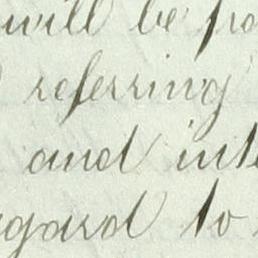 will be
referring
and
gard to